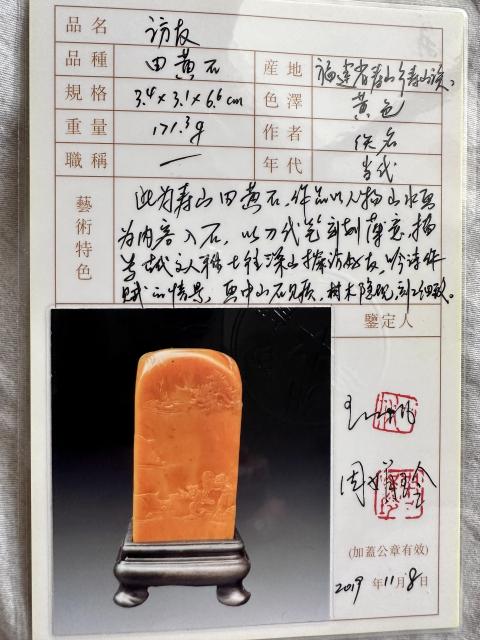 品名 访友
品種 田黄石 產地 福建省寿山乡寿山溪.
規格 3.4×3.1×6.6cm 色澤 黄色
重量 171.3g 作者 佚名
職稱 一 年代 当代
藝術特色
此为寿山田黄石,作品以人物山水画
为内容入石,以刀代笔刻制薄意,描
古代文人雅士往深山探访好友,吟诗作
赋的情景,画中山石见质,树木隐现,刻工细致。
鑒定人
(加蓋公章有效)
2019年11月8日